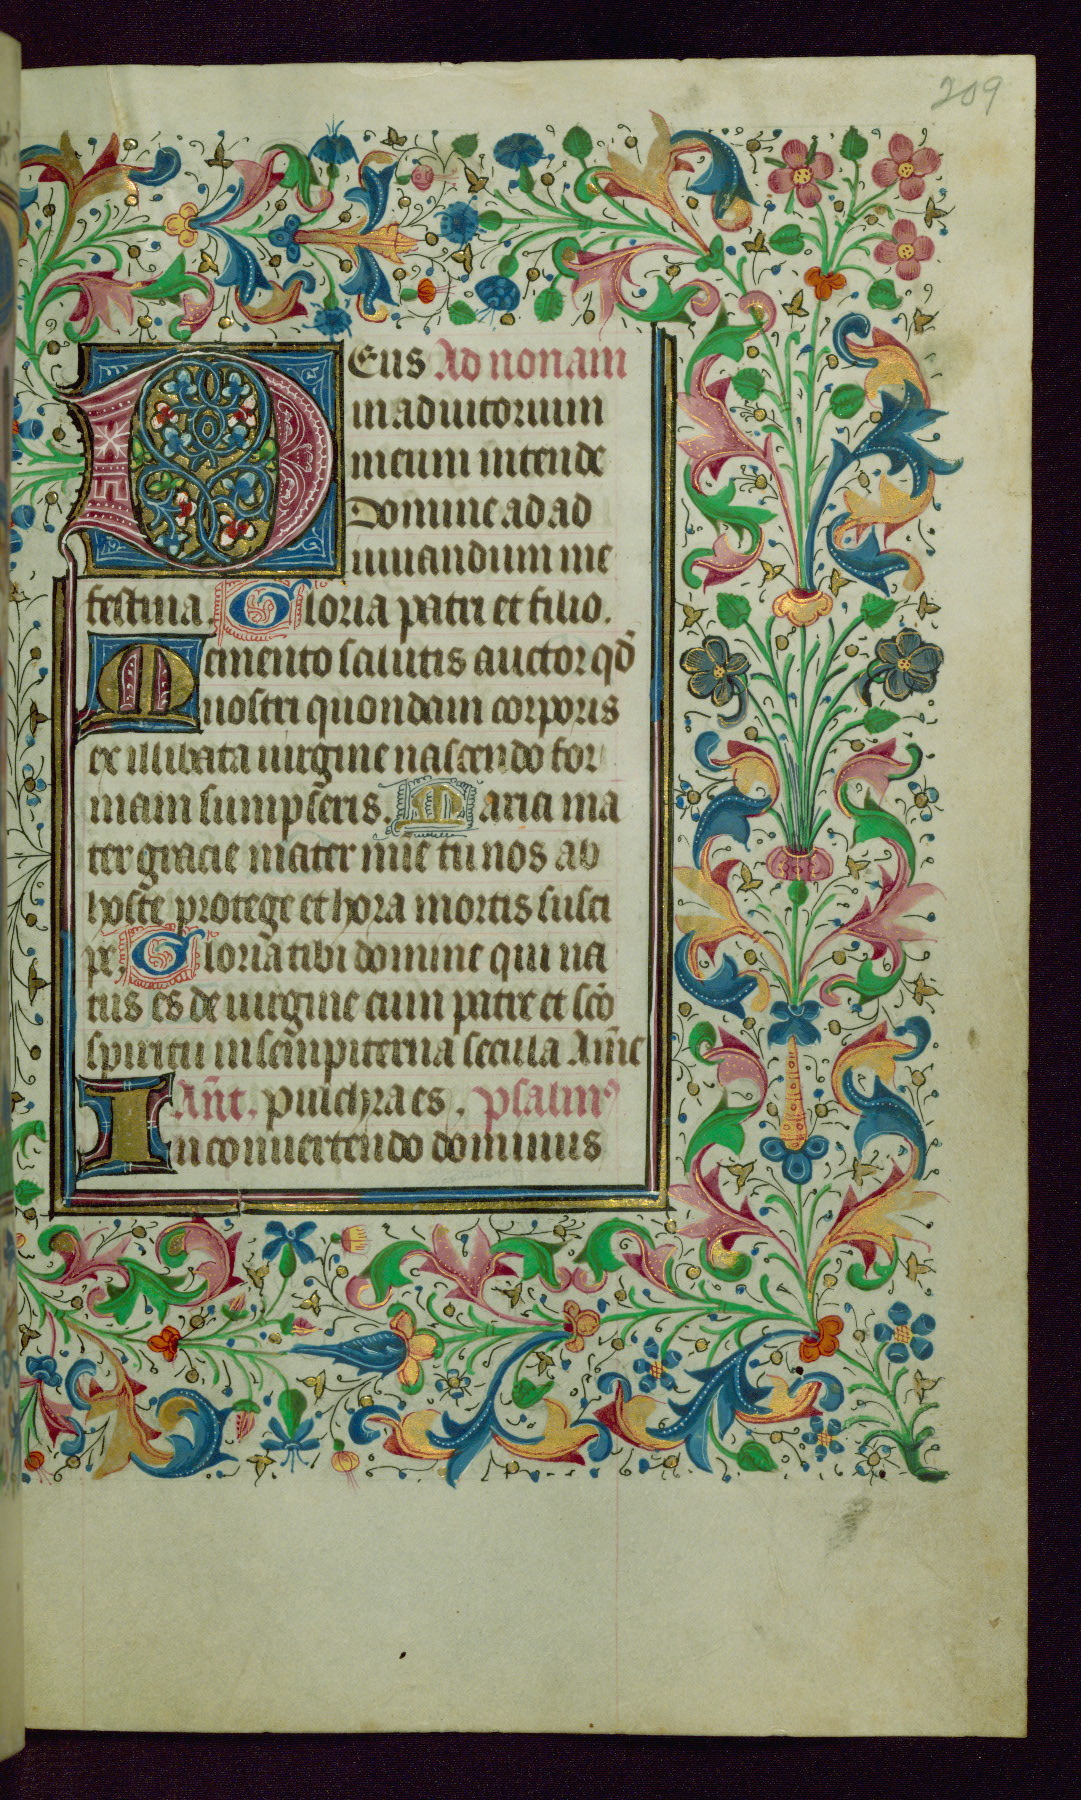 209
Deus Ad nonam
in adiutorium
meum intende
Domine ad ad
iuuandum me
festina. Gloria patri et filio.
Memento salutis auctor qd̄
nostri quondam corporis
ex illibata uirgine nascendo for
mam sumpseris. Maria ma
ter gracie mater mīe tu nos ab
hoste protege et hora mortis susci
pe, Gloria tibi domine qui na
tus es de uirgine cum patre et sc̄o
spiritu in sempiterna secula Am̄e
Añt. pulchra es. psalm⁹
In conuertendo dominus